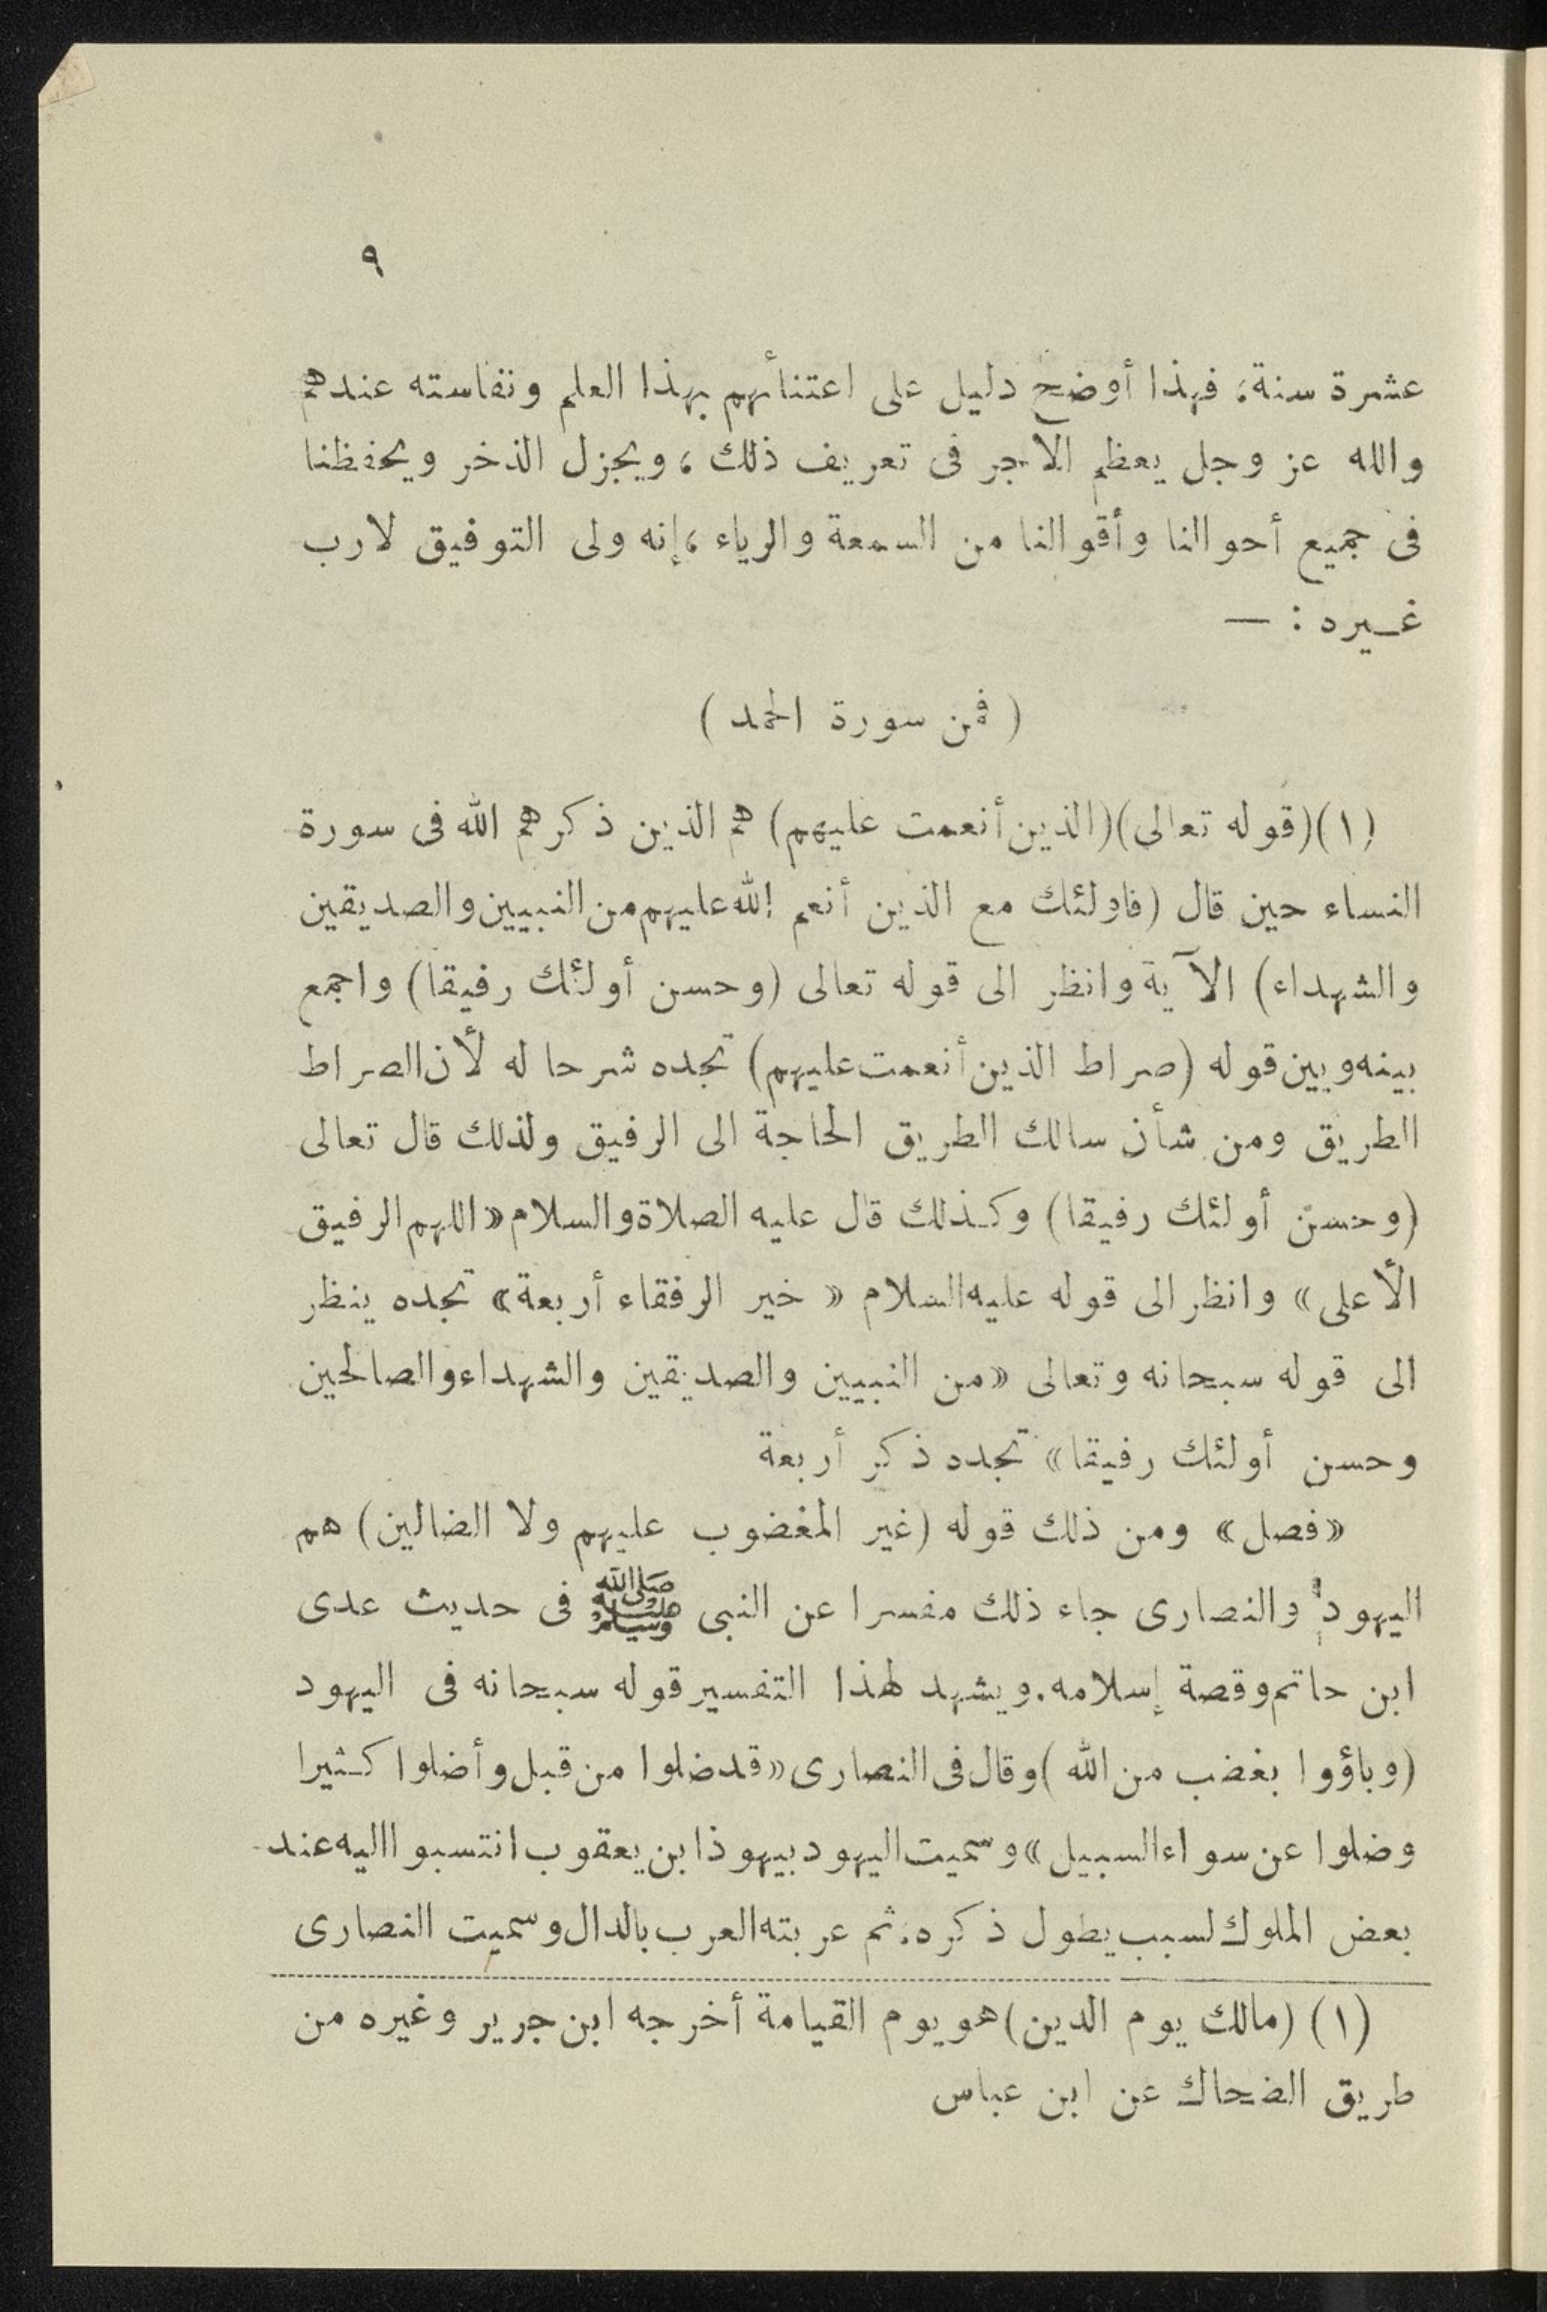 ٩
عشرة سنة، فهذا أوضح دليل على اعتنائهم بهذا العلم ونفاسته عندهم
والله عز وجل يعظم الأجر فى تعريف ذلك ، ويجزل الذخر ويحفظنا
فى جميع أحوالنا وأقوالنا من السمعة والرياء ، إنه ولى التوفيق لارب
غيره : —
( فمن سورة الحمد )
(١)(قوله تعالى)(الذين أنعمت عليهم) هم الذين ذكرهم الله فى سورة
النساء حين قال (فاولئك مع الذين أنعم الله عليهم من النبيين والصديقين
والشهداء) الآية وانظر الى قوله تعالى (وحسن أولئك رفيقا) واجمع
بينه وبين قوله (صراط الذين أنعمت عليهم) تجده شرحا له لأن الصراط
الطريق ومن شأن سالك الطريق الحاجة الى الرفيق ولذلك قال تعالى
(وحسن أولئك رفيقا) وكذلك قال عليه الصلاة والسلام « اللهم الرفيق
الأعلى » وانظر الى قوله عليه السلام « خير الرفقاء أربعة » تجده ينظر
الى قوله سبحانه وتعالى « من النبيين والصديقين والشهداء والصالحين
وحسن أولئك رفيقا » تجده ذكر أربعة
« فصل » ومن ذلك قوله (غير المغضوب عليهم ولا الضالين) هم
اليهود والنصارى جاء ذلك مفسرا عن النبى ﷺ فى حديث عدى
ابن حاتم وقصة إسلامه. ويشهد لهذا التفسير قوله سبحانه فى اليهود
(وباؤوا بغضب من الله ) وقال فى النصارى « قد ضلوا من قبل وأضلوا كثيرا
وضلوا عن سواء السبيل » وسميت اليهود بيهوذا بن يعقوب انتسبوا اليه عند
بعض الملوك لسبب يطول ذكره، ثم عربته العرب بالدال وسميت النصارى
(١) (مالك يوم الدين) هو يوم القيامة أخرجه ابن جرير وغيره من
طريق الضحاك عن ابن عباس